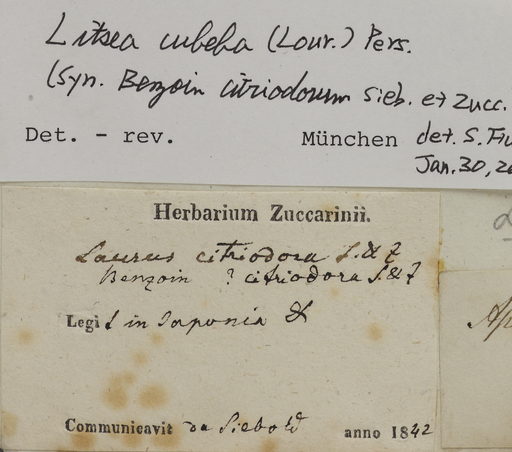 Litsea cubeba (Lour.) Pers.
(Syn. Benzoin citriodorum Sieb. et Zucc.
Det. - rev. München det. S. Fu
Jan. 30, 20
Herbarium Zuccarinii.
Laurus citriodora S. & Z
Benzoin ? citriodora S. & Z
Legit in Japonia
Communicavit de Siebold anno 1842
Ap